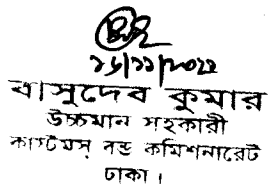 ১৬/১১/২০২২
বাসুদেব কুমার
উচ্চমান সহকারী
কাস্টমস্ বন্ড কমিশনারেট
ঢাকা।